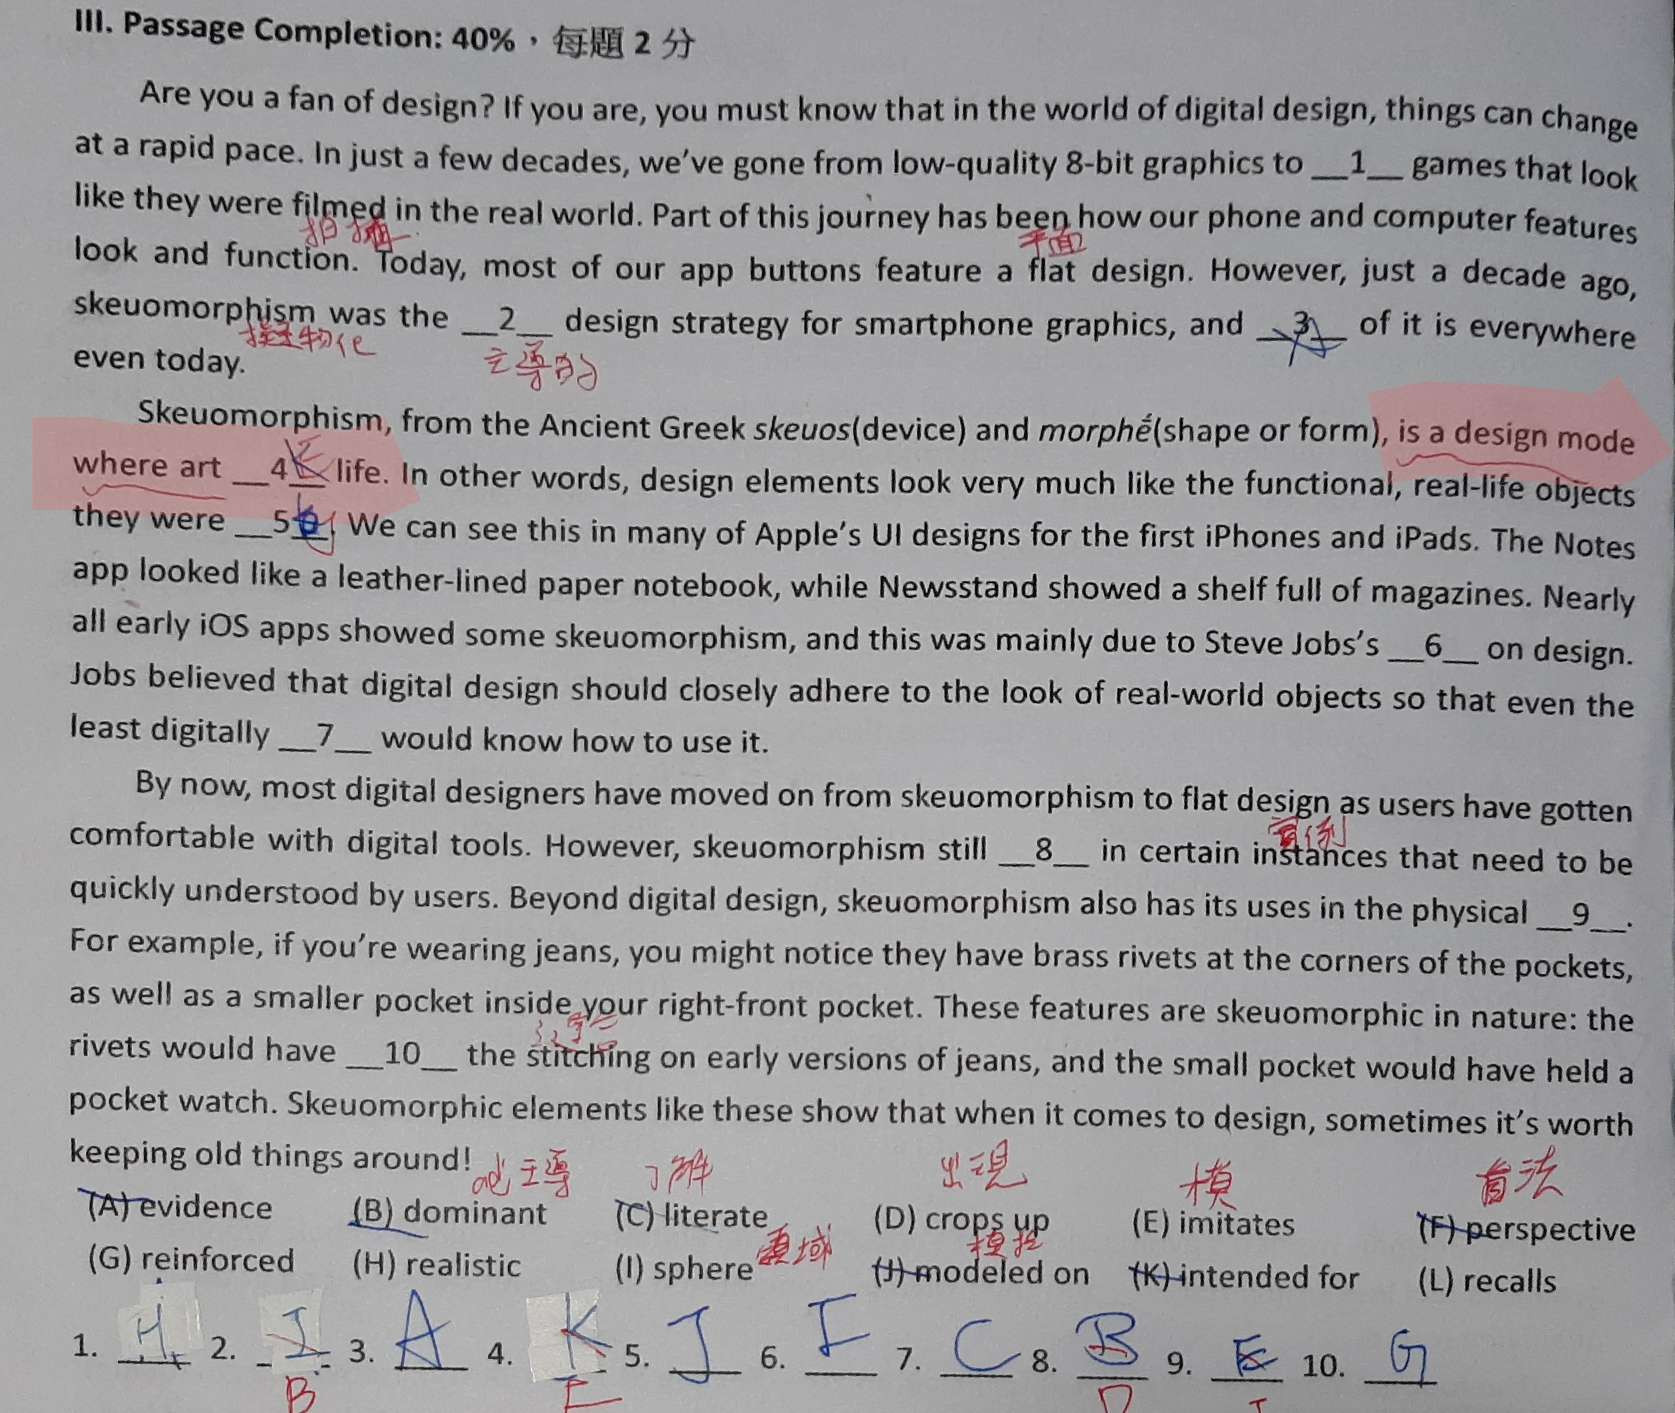 III. Passage Completion: 40%，每題 2 分
Are you a fan of design? If you are, you must know that in the world of digital design, things can change
at a rapid pace. In just a few decades, we've gone from low-quality 8-bit graphics to __1__ games that look
like they were filmed in the real world. Part of this journey has been how our phone and computer features
平面
look and function. Today, most of our app buttons feature a flat design. However, just a decade ago,
skeuomorphism was the __2__ design strategy for smartphone graphics, and __3__ of it is everywhere
A
主導的
even today.
Skeuomorphism, from the Ancient Greek skeuos(device) and morphḗ(shape or form), is a design mode
where art __4__ life. In other words, design elements look very much like the functional, real-life objects
they were __5__. We can see this in many of Apple's UI designs for the first iPhones and iPads. The Notes
app looked like a leather-lined paper notebook, while Newsstand showed a shelf full of magazines. Nearly
all early iOS apps showed some skeuomorphism, and this was mainly due to Steve Jobs's __6__ on design.
Jobs believed that digital design should closely adhere to the look of real-world objects so that even the
least digitally __7__ would know how to use it.
By now, most digital designers have moved on from skeuomorphism to flat design as users have gotten
comfortable with digital tools. However, skeuomorphism still __8__ in certain instances that need to be
quickly understood by users. Beyond digital design, skeuomorphism also has its uses in the physical __9__.
For example, if you're wearing jeans, you might notice they have brass rivets at the corners of the pockets,
as well as a smaller pocket inside your right-front pocket. These features are skeuomorphic in nature: the
rivets would have __10__ the stitching on early versions of jeans, and the small pocket would have held a
pocket watch. Skeuomorphic elements like these show that when it comes to design, sometimes it's worth
keeping old things around!
adj 主導 了解 出現 模 看法
(A) evidence (B) dominant (C) literate (D) crops up (E) imitates (F) perspective
領域
(G) reinforced (H) realistic (I) sphere (J) modeled on (K) intended for (L) recalls
1. H 2. I 3. A 4. K 5. J 6. F 7. C 8. B 9. E 10. G
B E D I